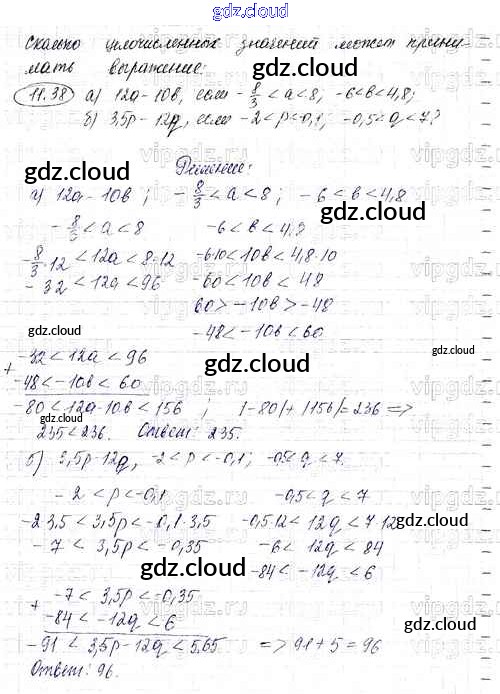 gdz.cloud
gdz.cloud
Сколько целочисленных значений может прини-
мать выражение:
11.38 а) 12a-10b, если -8/3<a<8; -6<b<4,8;
б) 3,5p-12q, если -2<p<-0,1; -0,5<q<7?
gdz.cloud gdz.cloud
Решение:
а) 12a-10b; -8/3<a<8; -6<b<4,8
-8/3<a<8 -6<b<4,8
-8/3·12<12a<8·12 -6·10<10b<4,8·10
-32<12a<96 -60<10b<48
60>-10b>-48
-48<-10b<60
gdz.cloud
gdz.cloud
-32<12a<96
+
-48<-10b<60
-80<12a-10b<156; |-80|+|156|=236 =>
gdz.cloud
235<236. Ответ: 235.
б) 3,5p-12q, -2<p<-0,1; -0,5<q<7.
-2<p<-0,1 -0,5<q<7
-2·3,5<3,5p<-0,1·3,5 -0,5·12<12q<7·12
gdz.cloud
-7<3,5p<-0,35 -6<12q<84
gdz.cloud
-84<-12q<6
-7<3,5p<-0,35
+
-84<-12q<6
-91<3,5p-12q<5,65 => 91+5=96
gdz.cloud gdz.cloud
Ответ: 96.